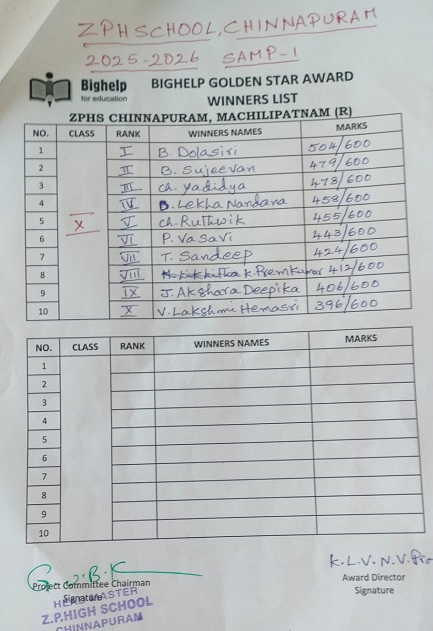 ZPHSCHOOL, CHINNAPURAM
2025-2026 SAMP-1
Bighelp
for education
BIGHELP GOLDEN STAR AWARD
WINNERS LIST
ZPHS CHINNAPURAM, MACHILIPATNAM (R)
NO. CLASS RANK WINNERS NAMES MARKS
1 I B. Dolasiri 504/600
2 II B. Sujeevan 479/600
3 III Ch. Yadidya 478/600
4 IV B. Lekha Nandana 458/600
5 X V Ch. Ruthwik 455/600
6 VI P. Vasavi 443/600
7 VII T. Sandeep 424/600
8 VIII K. Premkumar 412/600
9 IX J. Akshara Deepika 406/600
10 X V. Lakshmi Hemasri 396/600
NO. CLASS RANK WINNERS NAMES MARKS
1
2
3
4
5
6
7
8
9
10
K.L.V.N.V.
Project Committee Chairman
Signature
Award Director
Signature
HEADMASTER
Z.P.HIGH SCHOOL
CHINNAPURAM